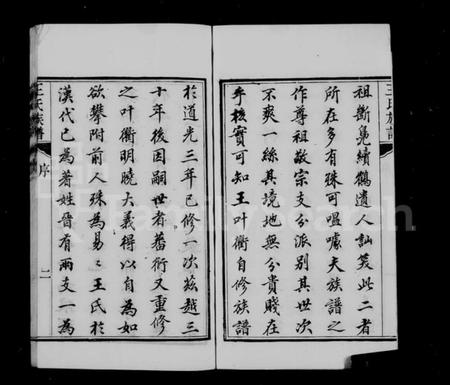 王氏族譜
祖斷鳧續鶴遺人訕笑此二者
所在多有殊可嗢噱夫族譜之
作尊祖敬宗支分派別其世次
不爽一絲其境地無分貴賤在
手核實可知王叶衢自修族譜
於道光三年已修一次茲越三
十年後因嗣世者蕃衍又重修
之叶衢明曉大義得以自為如
欲攀附前人殊為易易王氏於
漢代已為著姓晉有兩支一為
王氏族譜
序
二
FamilySearch